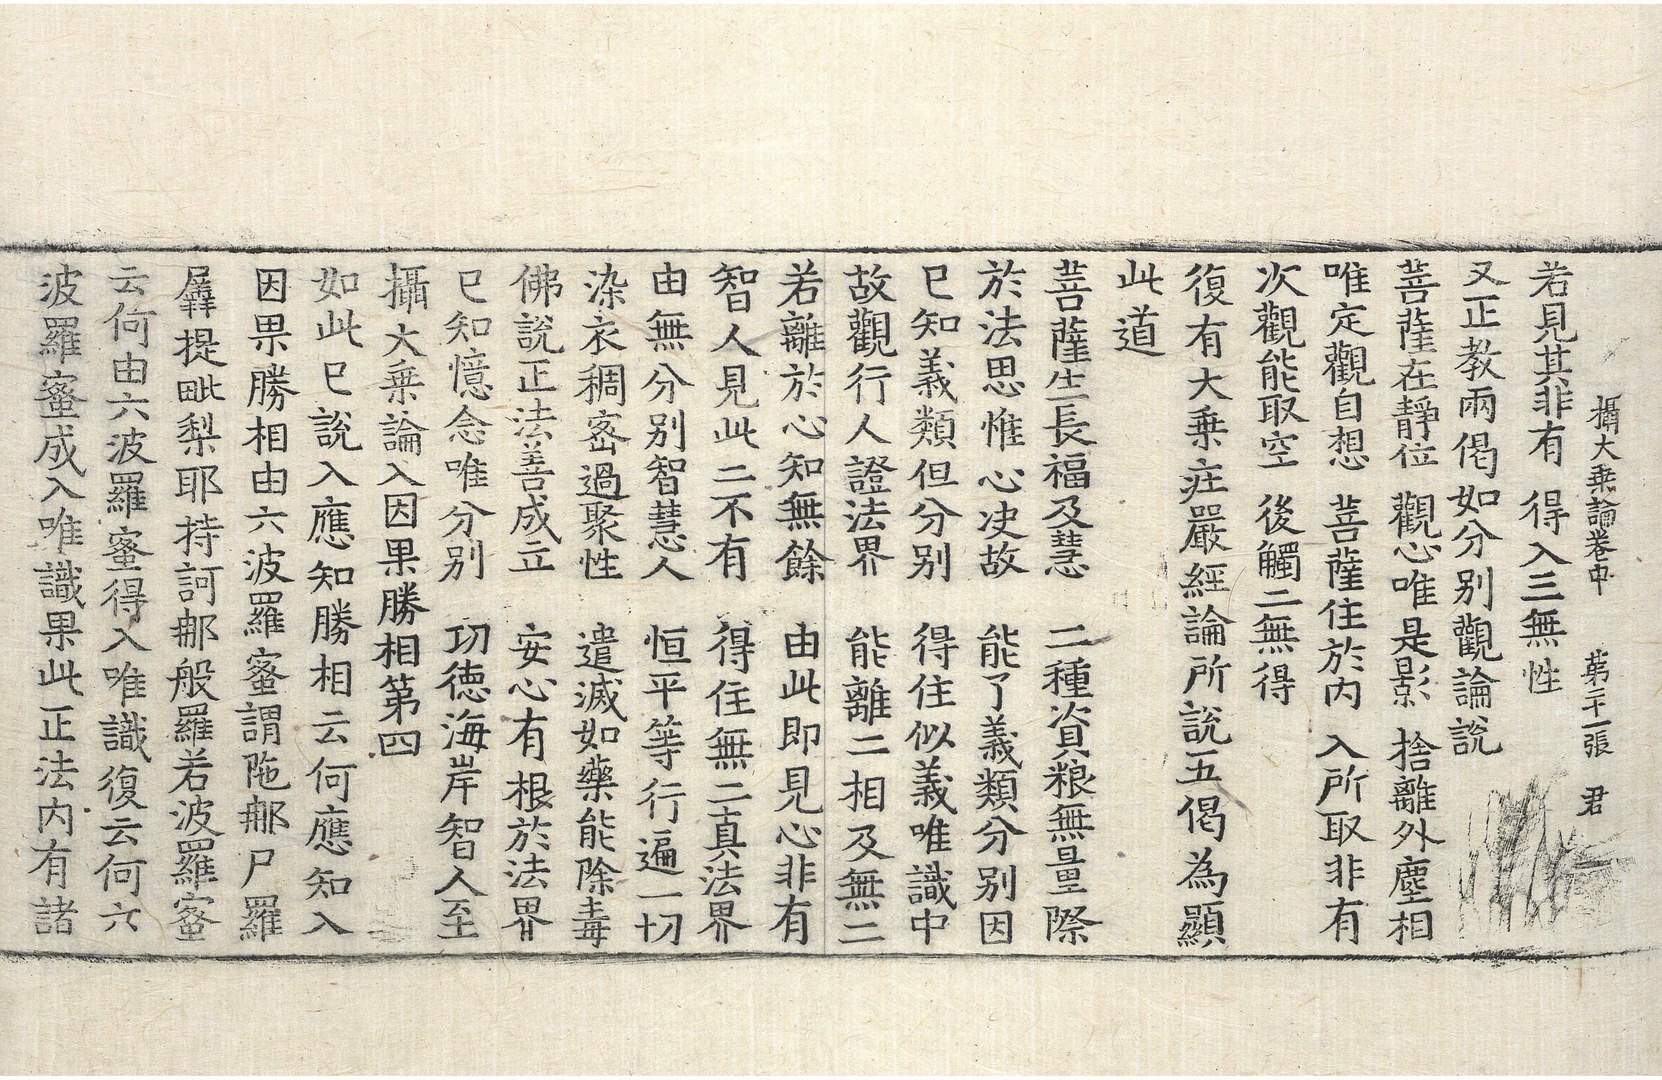 攝大乗論卷中　第二十一張　君
若見其非有　得入三無性
又正教兩偈如分别觀論說
菩薩在靜位　觀心唯是影　捨離外塵相
唯定觀自想　菩薩住於内　入所取非有
次觀能取空　後觸二無得
復有大乗㽵嚴經論所說五偈為顯
此道
菩薩生長福及慧　二種資粮無量際
於法思惟心决故　能了義類分别因
已知義類但分别　得住似義唯識中
故觀行人證法界　能離二相及無二
若離於心知無餘　由此即見心非有
智人見此二不有　得住無二真法界
由無分别智慧人　恒平等行遍一切
染衣稠宻過聚性　遣滅如藥能除毒
佛說正法善成立　安心有根於法界
已知憶念唯分别　功徳海岸智人至
攝大乗論入因果勝相第四
如此已說入應知勝相云何應知入
因果勝相由六波羅蜜謂陁郍尸羅
羼提毗梨耶持訶郍般羅若波羅蜜
云何由六波羅蜜得入唯識復云何六
波羅蜜成入唯識果此正法内有諸